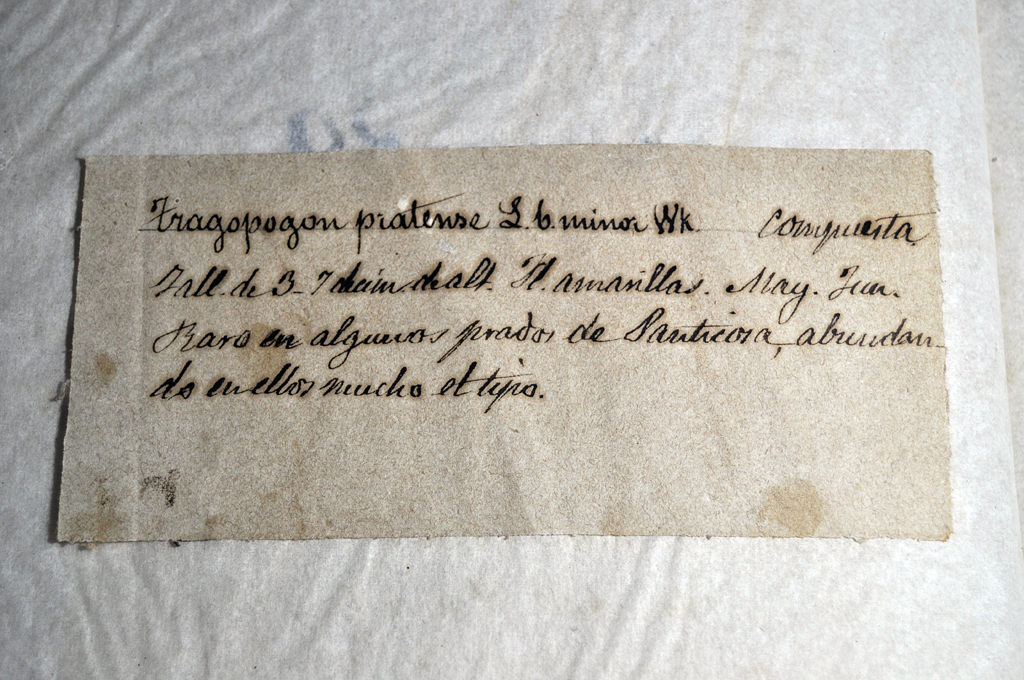 Tragopogon pratense L. b. minor Wk. Compuesta
Tall. de 3-7 decim. de alt. Fl. amarillas. May. Jun.
Raro en algunos prados de Panticosa, abundan-
do en ellos mucho el tipo.